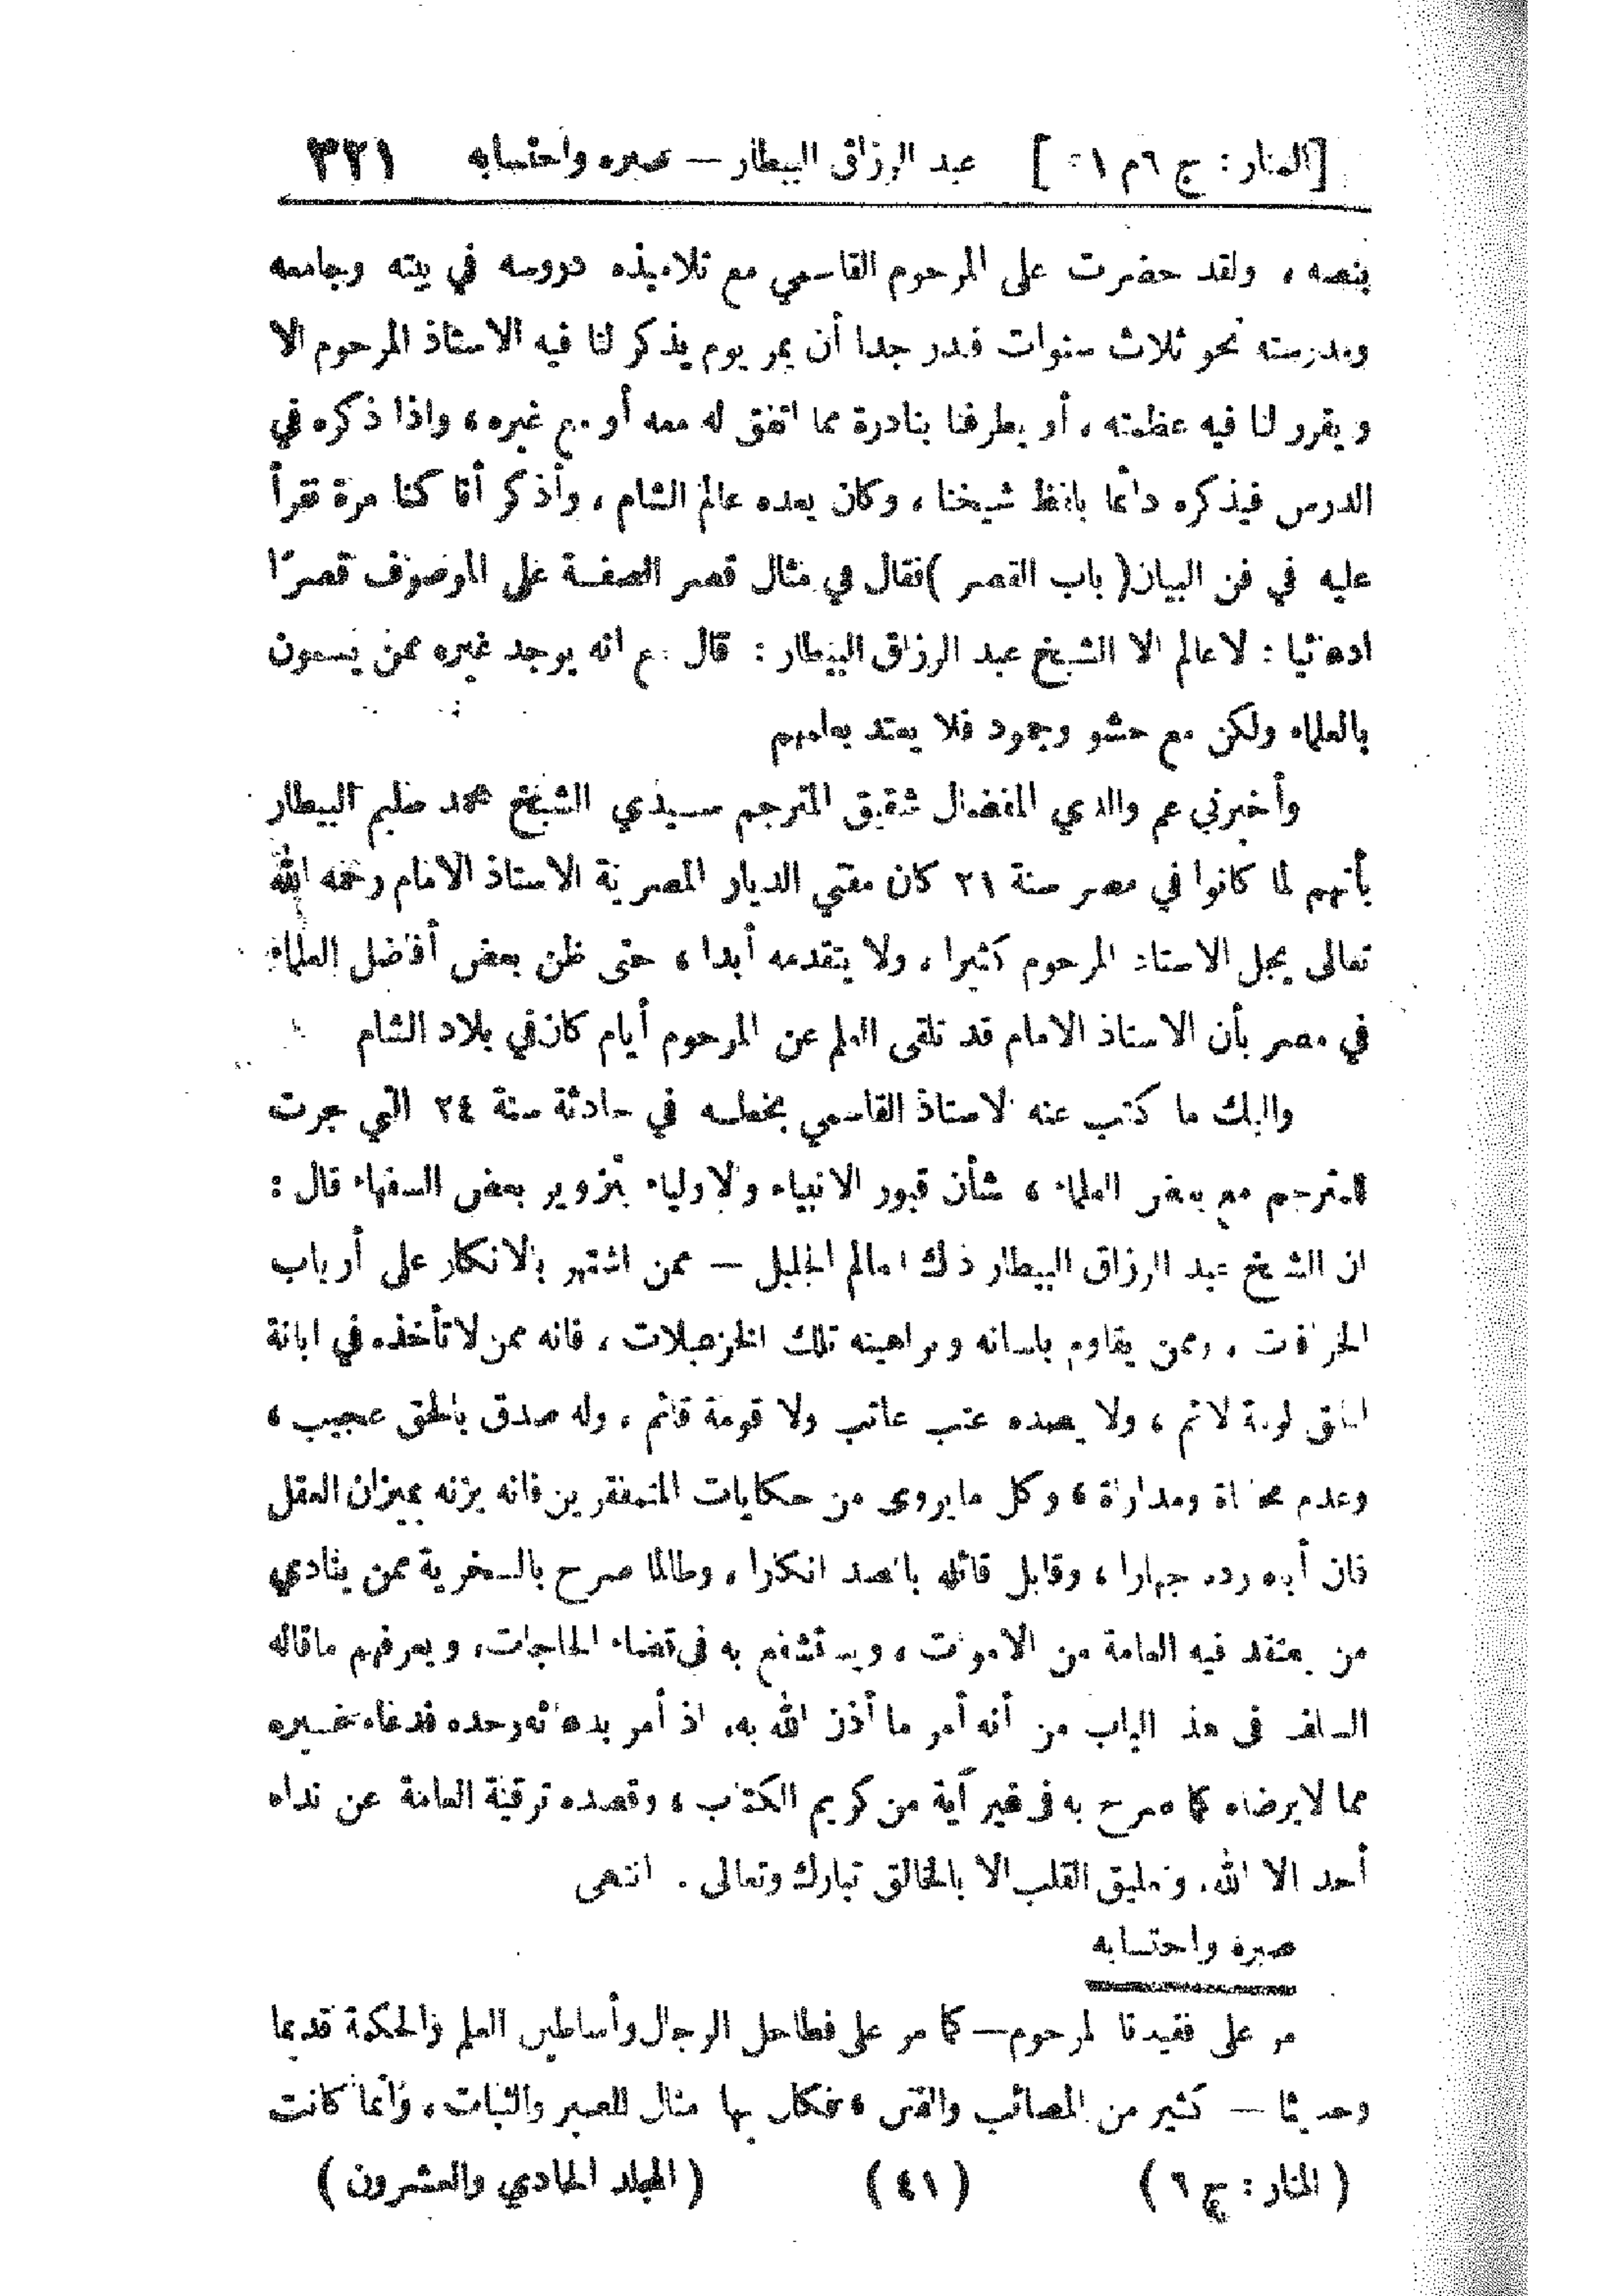 [المنار : ج ٦ م ٢١] عبد الرزاق البيطار — صبره واحتسابه ٣٢١
بنصه ، ولقد حضرت على المرحوم القاسمي مع تلاميذه دروسه في بيته وجامعه
ومدرسته نحو ثلاث سنوات فندر جدا أن يمر يوم يذكر لنا فيه الاستاذ المرحوم الا
ويقرر لنا فيه عظمته ، أو يطرفنا بنادرة مما اتفق له معه أو مع غيره ، واذا ذكره في
الدرس فيذكره دائما بلفظ شيخنا ، وكان يعده عالم الشام ، وأذكر أنا كنا مرة نقرأ
عليه في فن البيان ( باب القصر ) فقال في مثال قصر الصفة على الموصوف قصرًا
ادعائيا : لا عالم الا الشيخ عبد الرزاق البيطار : قال مع انه يوجد غيره ممن يسمون
بالعلماء ولكن مع حشو وجمود فلا يعتد بعلمهم
وأخبرني عم والدي المفضال شقيق المترجم سيدي الشيخ محمد سليم البيطار
بأنهم لما كانوا في مصر سنة ٢١ كان مفتي الديار المصرية الاستاذ الامام رحمه الله
تعالى يجل الاستاذ المرحوم كثيرا ، ولا يتقدمه أبدا ، حتى ظن بعض أفاضل العلماء
في مصر بأن الاستاذ الامام قد تلقى العلم عن المرحوم أيام كان في بلاد الشام
واليك ما كتب عنه الاستاذ القاسمي بخطه في حادثة سنة ٢٤ التي جرت
للمترجم مع بعض العلماء ، شأن قبور الانبياء والاولياء بتزوير بعض السفهاء قال :
ان الشيخ عبد الرزاق البيطار ذلك العالم الجليل — ممن اشتهر بالانكار على أرباب
الخرافات ، وممن يقاوم بلسانه وبراهينه تلك الخزعبلات ، فانه ممن لا تأخذه في ابانة
الحق لومة لائم ، ولا يصده عتب عاتب ولا قومة قائم ، وله صدق بالحق عجيب ،
وعدم محاباة ومداراة ، وكل ما يروى من حكايات المتمفقرين فانه يزنه بميزان العقل
فان أباه رده جهارا ، وقابل قائله بالصد انكارا ، وطالما صرح بالسخرية ممن ينادي
من يعتقد فيه العامة من الاموات ، ويستشفع به في قضاء الحاجات، ويعرفهم ما قاله
السلف في هذا الباب من أنه أمر ما أذن الله به، اذ أمر بدعائه وحده فدعاء غيره
مما لا يرضاه كما صرح به في غير آية من كريم الكتاب ، وقصده ترقية العامة عن نداء
أحد الا الله، وتعليق القلب الا بالخالق تبارك وتعالى . انتهى
صبره واحتسابه
مر على فقيدنا المرحوم — كما مر على فطاحل الرجال وأساطين العلم والحكمة قديما
وحديثا — كثير من المصائب والفتن ، فكان بها مثال للصبر والثبات ، وانما كانت
( المنار : ج ٦ ) ( ٤١ ) ( المجلد الحادي والعشرون )